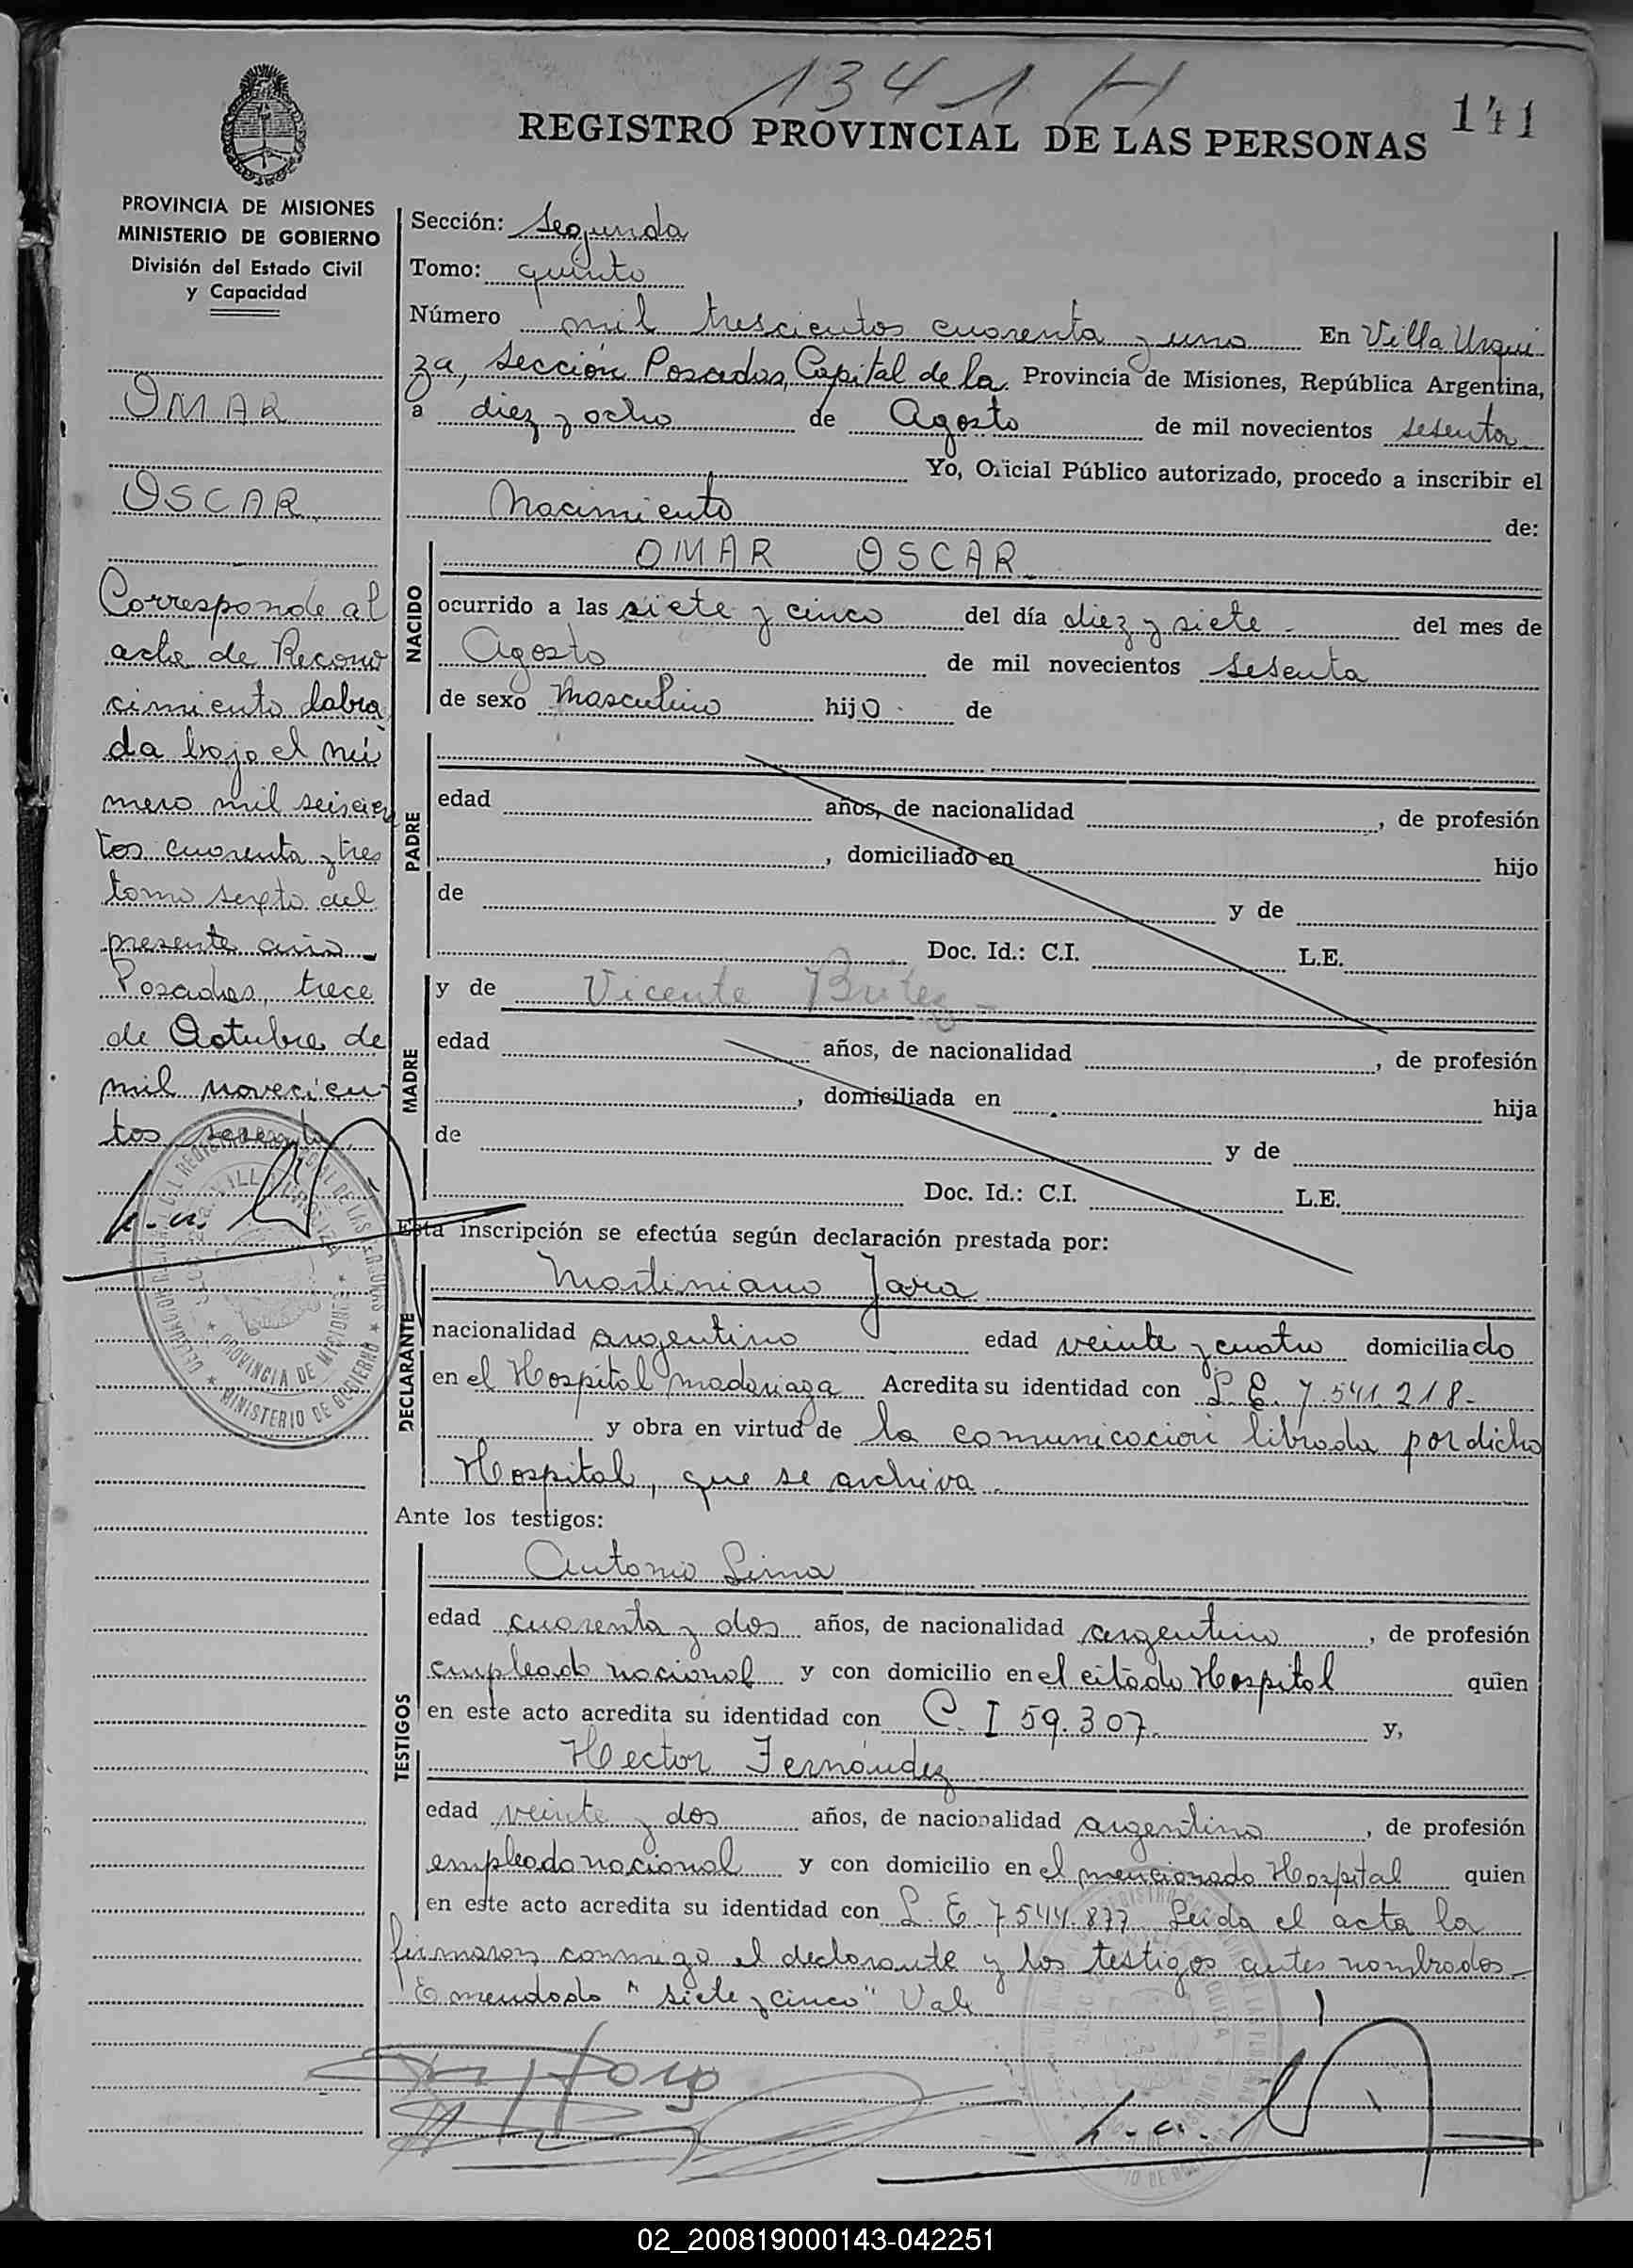 1341 H
141
REGISTRO PROVINCIAL DE LAS PERSONAS
PROVINCIA DE MISIONES
MINISTERIO DE GOBIERNO
División del Estado Civil
y Capacidad
OMAR
OSCAR
Corresponde al
acta de Recono
cimiento labra
da bajo el nú
mero mil seiscien
tos cuarenta y tres
tomo sexto del
presente año
Posadas, trece
de Octubre de
mil novecien
tos sesenta
Sección: Segunda
Tomo: quinto
Número mil trescientos cuarenta y uno En Villa Urqui
za, Sección Posadas, Capital de la Provincia de Misiones, República Argentina,
a diez y ocho de Agosto de mil novecientos sesenta
Yo, Oficial Público autorizado, procedo a inscribir el
Nacimiento de:
NACIDO
OMAR OSCAR
ocurrido a las siete y cinco del día diez y siete - del mes de
Agosto de mil novecientos sesenta
de sexo Masculino hijo de
PADRE
edad años, de nacionalidad , de profesión
, domiciliado en hijo
de y de
Doc. Id.: C.I. L.E.
MADRE
y de Vicenta Britez -
edad años, de nacionalidad , de profesión
, domiciliada en hija
de y de
Doc. Id.: C.I. L.E.
Esta inscripción se efectúa según declaración prestada por:
DECLARANTE
Martiniano Jara
nacionalidad argentino edad veinte y cuatro domiciliado
en el Hospital Madariaga Acredita su identidad con L. E. 7.541.218-
y obra en virtud de la comunicación librada por dicho
Hospital, que se archiva
Ante los testigos:
TESTIGOS
Antonio Lima
edad cuarenta y dos años, de nacionalidad argentino , de profesión
empleado nacional y con domicilio en el citado Hospital quien
en este acto acredita su identidad con C. I 59.307. y,
Hector Fernández
edad veinte y dos años, de nacionalidad argentino , de profesión
empleado nacional y con domicilio en el mencionado Hospital quien
en este acto acredita su identidad con L. E. 7544.877 Leida el acta la
firmaron conmigo el declarante y los testigos antes nombrados-
Emendado "siete y cinco" Vale
PROVINCIA DE MISIONES
MINISTERIO DE GOBIERNO
02_200819000143-042251